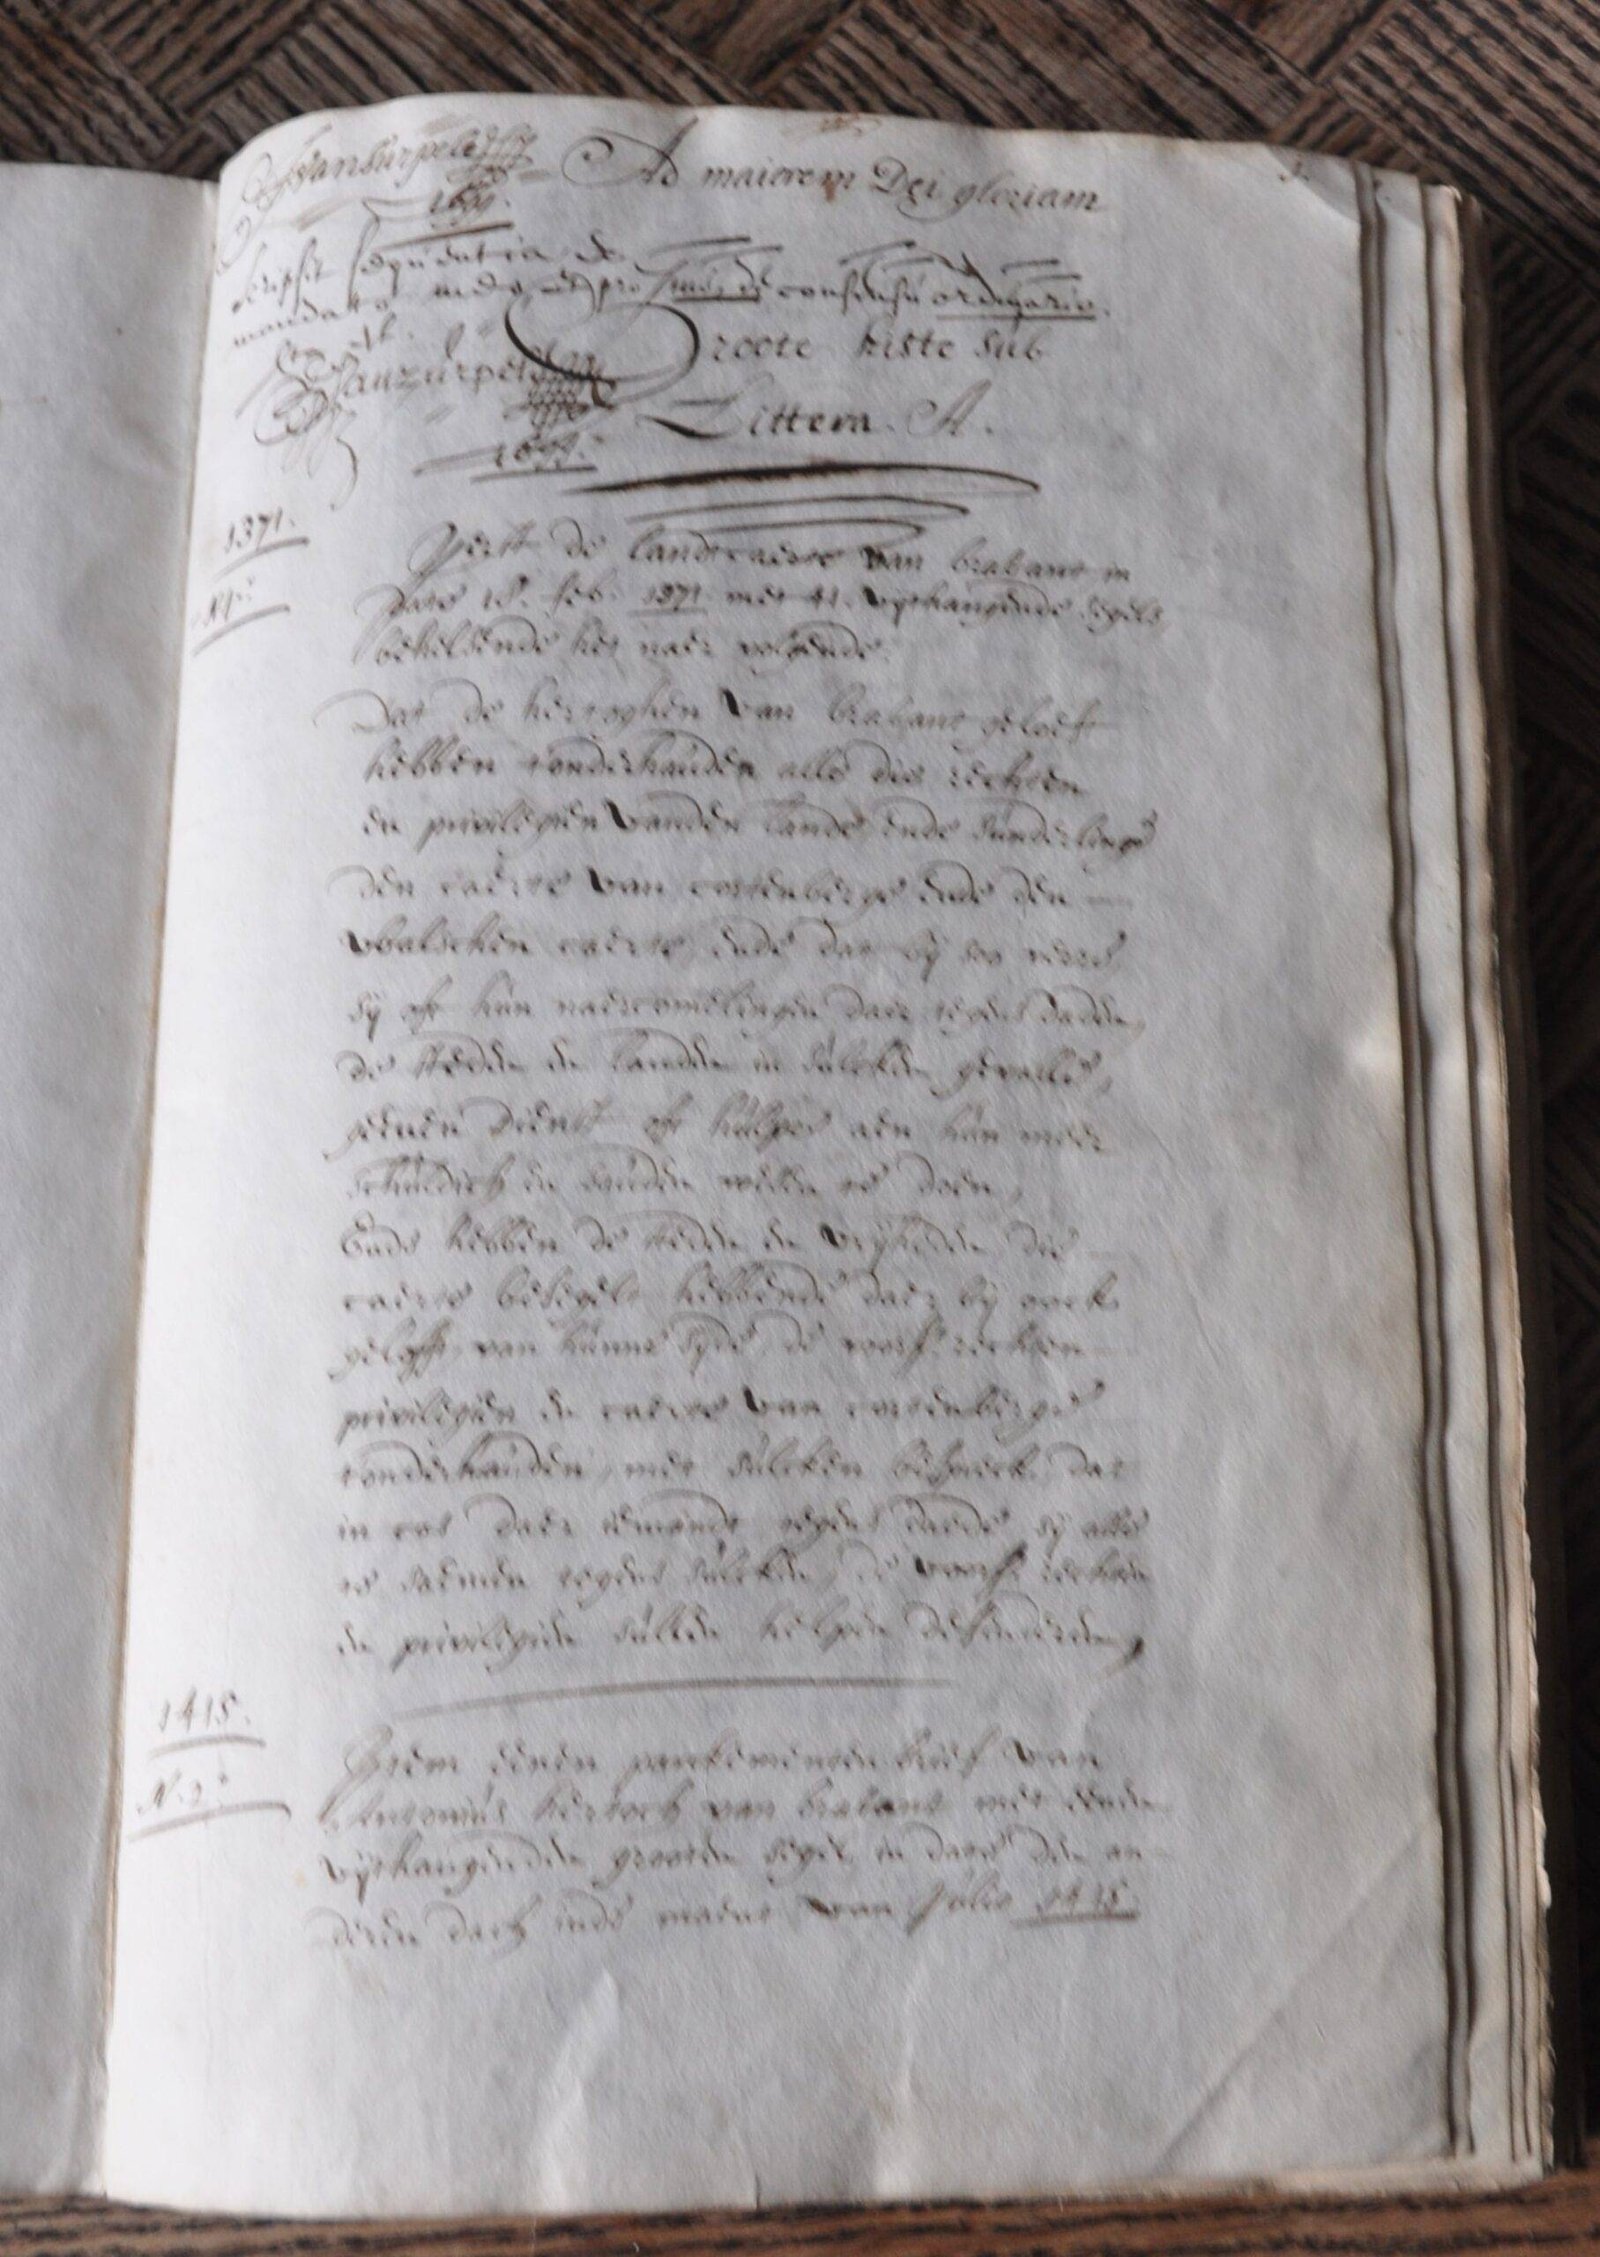 Ad maiorem Dei gloriam
1699.
scripsit sequentia de
mandato meo et pro consensu ordinario.
Groote kiste sub
Littera A.
1699.
1371.
N 1:
Yerst de landtcaerte van brabant in
date 18. feb. 1371 met 41. uythangende segels
behelsende het naer volgende.
Dat de hertoghen van brabant geloeft
hebben t'onderhauden alle die rechten
en privilegien vanden lande ende sunderlinge
den caerte van cortenberge ende den
walschen caerte, ende dat by soo verre
sy oft hun naercomelingen daer tegens daden,
de steden en landen in sulcken gevalle,
geenen dienst oft hulpe aen hun meer
schuldich en sauden wesen te doen,
Ende hebben de steden en vryheden die
caerte besegelt hebbende daer by oock
geloft, van hunne syde de voors. rechten
privilegien en caerte van cortenberge
t'onderhauden, met sulcken bespreck dat
in cas daer iemandt tegens daede sy alle
te saemen tegens sulcken, de voors. rechten
en privilegien sullen helpen defenderen,
1415.
N. 2:
Item eenen parkementen brief van
Antonius hertoch van brabant met eenen
uythangenden grooten segel, in date den an-
deren dach inde maent van Julio 1415.